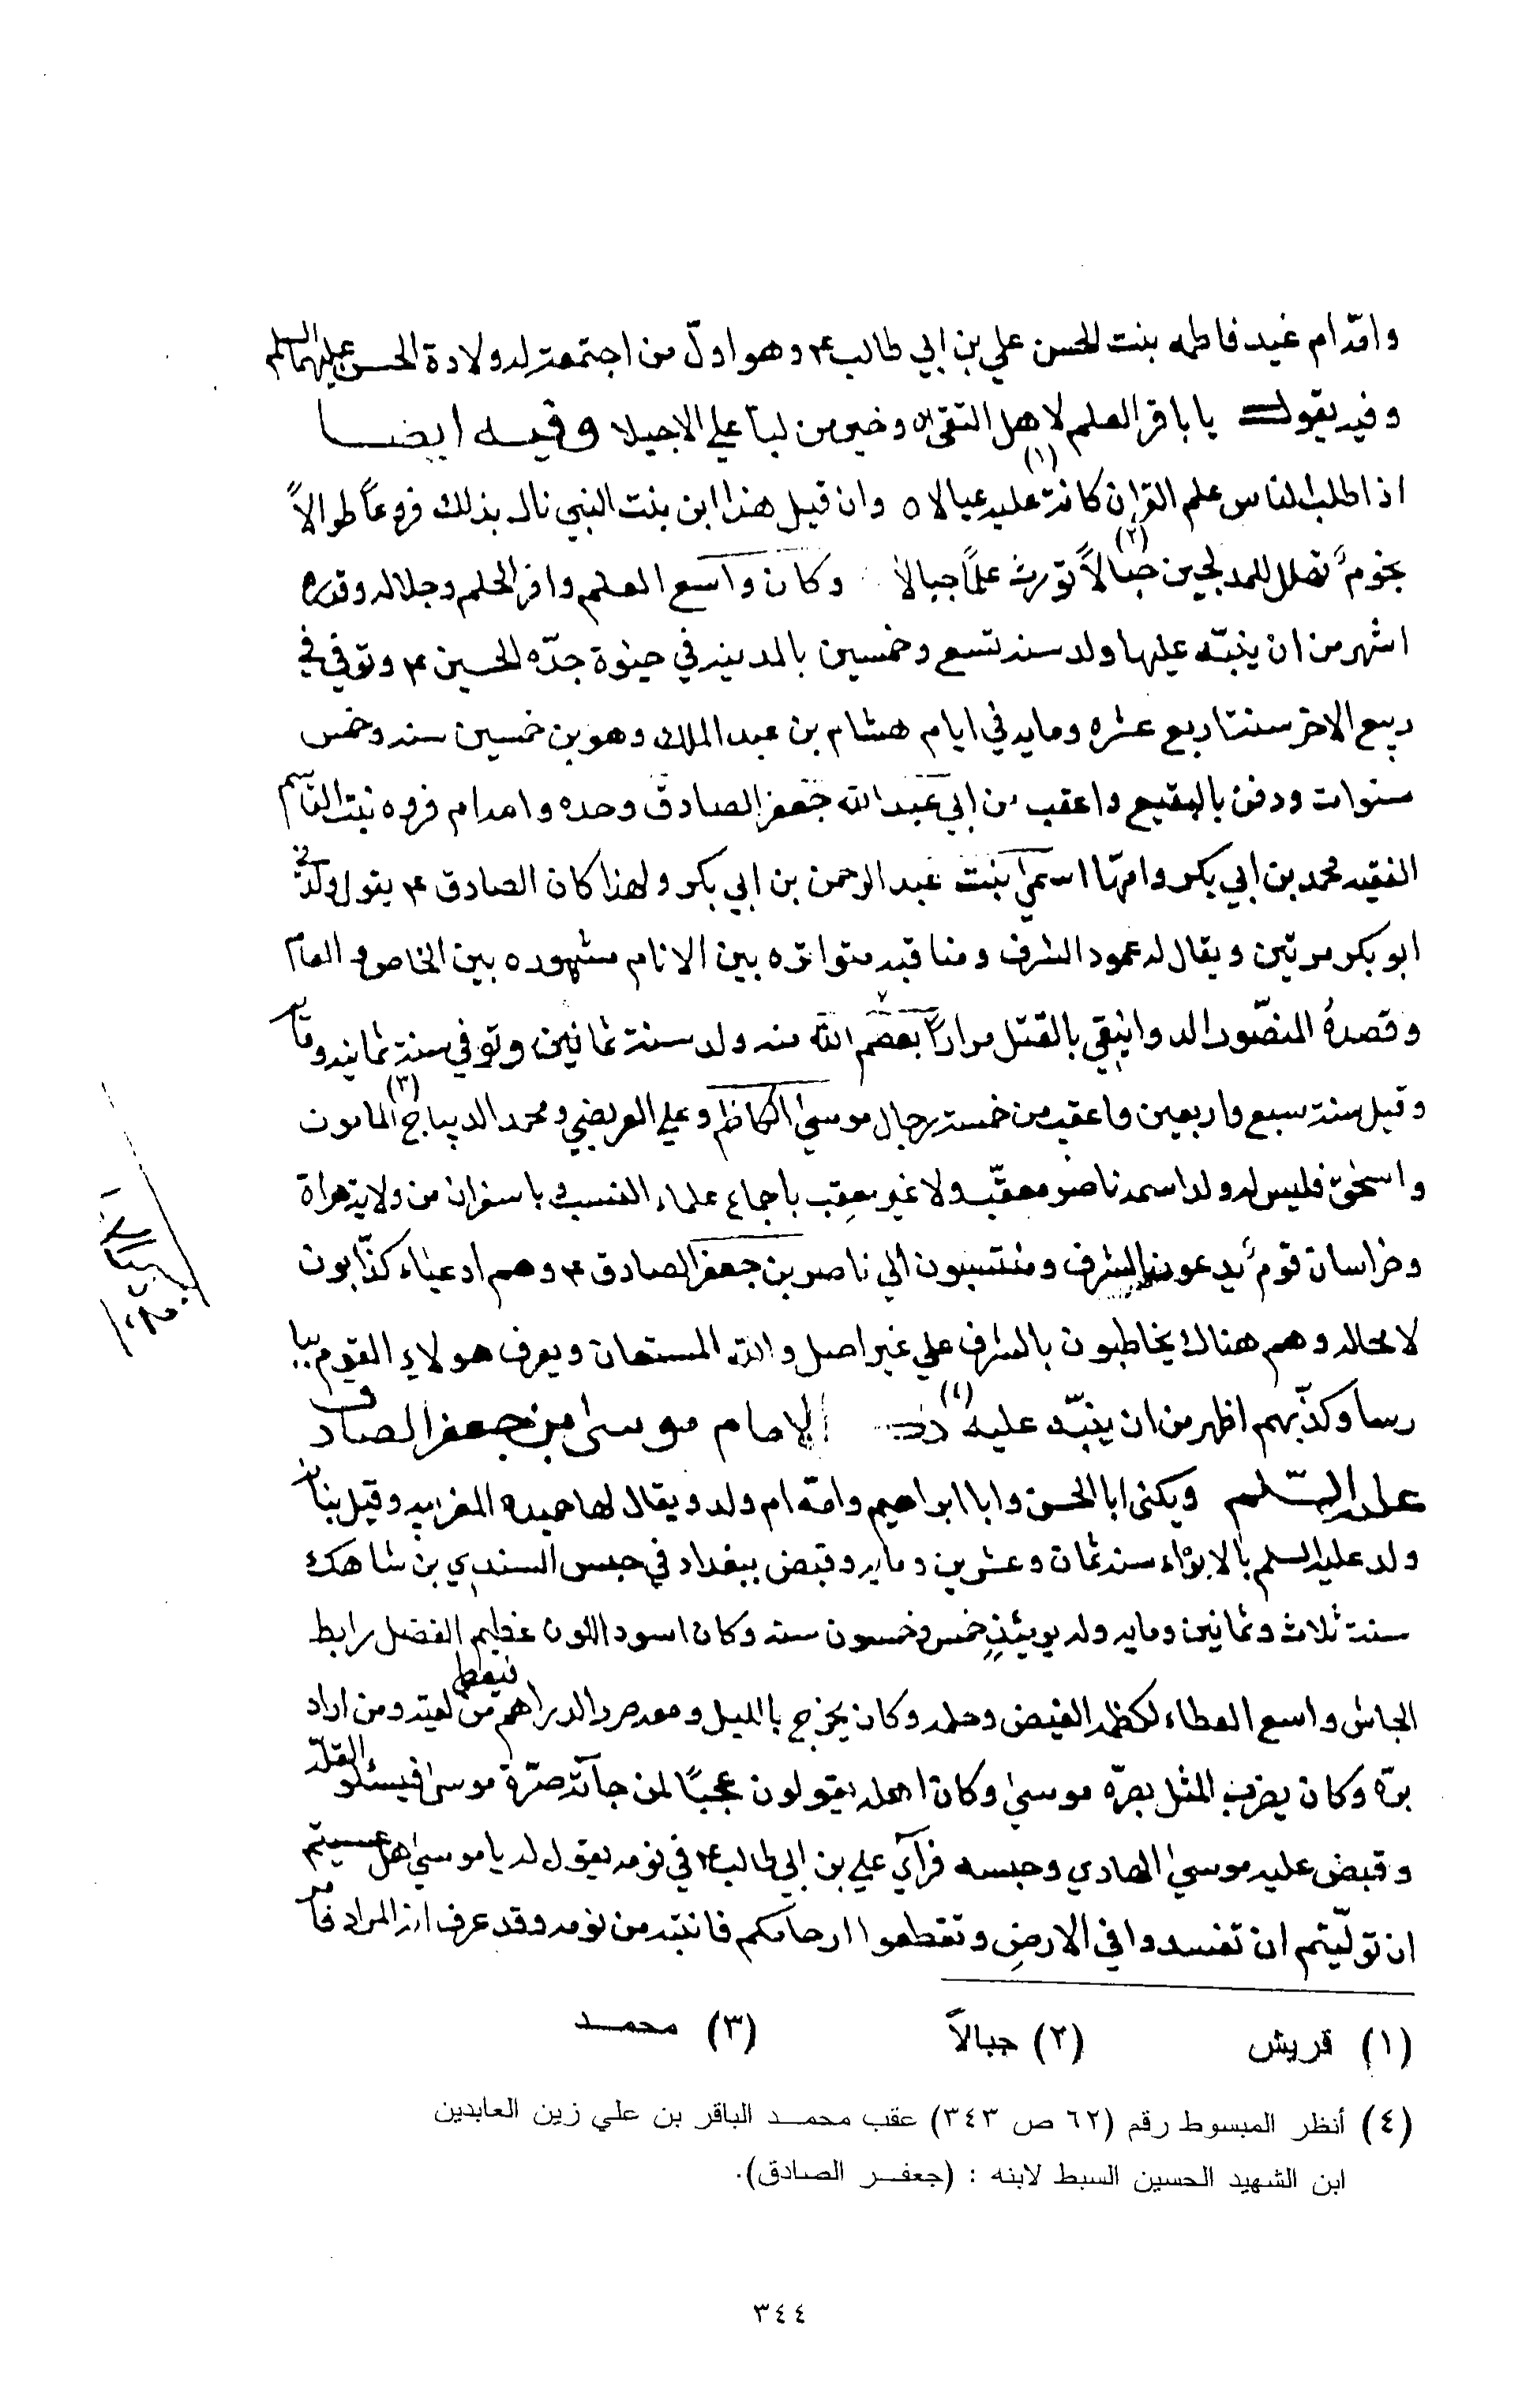 وامّه ام عبد فاطمه بنت الحسن علي بن ابي طالب ع وهو اوّل من اجتمعت له ولادة الحسن عليهما السلم
وفيه يقول يا باقر العلم لاهل التقى وخير من لبّا علي الاجبلا وفيه ايضا
اذا طلب الناس علم القران كانت (١) عليه عيالا ه وان قيل هذا ابن بنت النبي نال بذلك فروعاً طوالاً
نجومٌ تهلل للمدلجين جبالاً (٢) تورث علماً جبالا وكان واسع العلم وافر الحلم وجلاله وقدره
اشهر من ان ينبّه عليها ولد سنه تسع وخمسين بالمدينه في حيوة جدّه الحسين ع وتوفي في
ربيع الاخر سنت اربع عشره ومايه في ايام هشام بن عبد الملك وهو بن خمسين سنه وخمس
سنوات ودفن بالبقيع واعقب من ابي عبد الله جعفر الصادق وحده وامه ام فروه بنت القاسم
الفقيه محمد بن ابي بكر وامّها اسمى بنت عبد الرحمن بن ابي بكر ولهذا كان الصادق ع يقول ولدني
ابو بكر مرتين ويقال له عمود الشرف ومناقبه متواتره بين الانام مشهوره بين الخاص والعام
وقصدهُ المنصّور الدوانيقي بالقتل مراراً بعصم الله منه ولد سنة ثمانين وتوفي سنة ثمانيه وما
وقيل سنة سبع واربعين واعقب من خمسة رجال موسى الكاظم وعلي العريضي ومحمد الديباج (٣) المامون
واسحق فليس له ولد اسمه ناصر معقّب ولا غير معقب باجماع علماء النسب وباسفران من ولاية هراة
وخراسان قومٌ يدعون الشرف ومنتسبون الي ناصر بن جعفر الصادق ع وهم ادعياء كذّابون
لا محاله وهم هناك يخاطبون بالشرف علي غير اصل والله المستعان ويعرف هولاء القوم ببا
رسا وكذّبهم اظهر من ان ينبّه عليه (٤) الامام موسى بن جعفر الصادق
عليه السّلم ويكنى ابا الحسن وابا ابراهيم وامّه ام ولد ويقال لها حميده المغربيه وقيل بنا
ولد عليه السلم بالابواء سنه ثمان وعشرين ومايه وقبض ببغداد في حبس السندي بن شاهك
سنت ثلاث وثمانين ومايه وله يومئذٍ خمس وخمسون سنه وكان اسود اللون عظيم الفضل رابط
الجاش واسع العطاء لكظمه الغيض وحلمه وكان يخرج بالليل ومعه صرر الدراهم فيعطي من لقيه ومن اراد
برّه وكان يضرب المثل بصرّه موسى وكان اهله يقولون عجبًا لمن جآئه صرّة موسى فيشكو القلّه
وقبض عليه موسى الهادي وحبسه فرآي علي بن ابي طالب ع في نومه يقول له يا موسى هل عسيتم
ان تولّيتم ان تفسدوا في الارض وتقطعوا ارحامكم فانتبه من نومه وقد عرف انه المراد فا
(١) قريش (٢) جبالاً (٣) محمد
(٤) أنظر المبسوط رقم (٦٢ ص ٣٤٣) عقب محمد الباقر بن علي زين العابدين
ابن الشهيد الحسين السبط لابنه : (جعفر الصادق).
٣٤٤